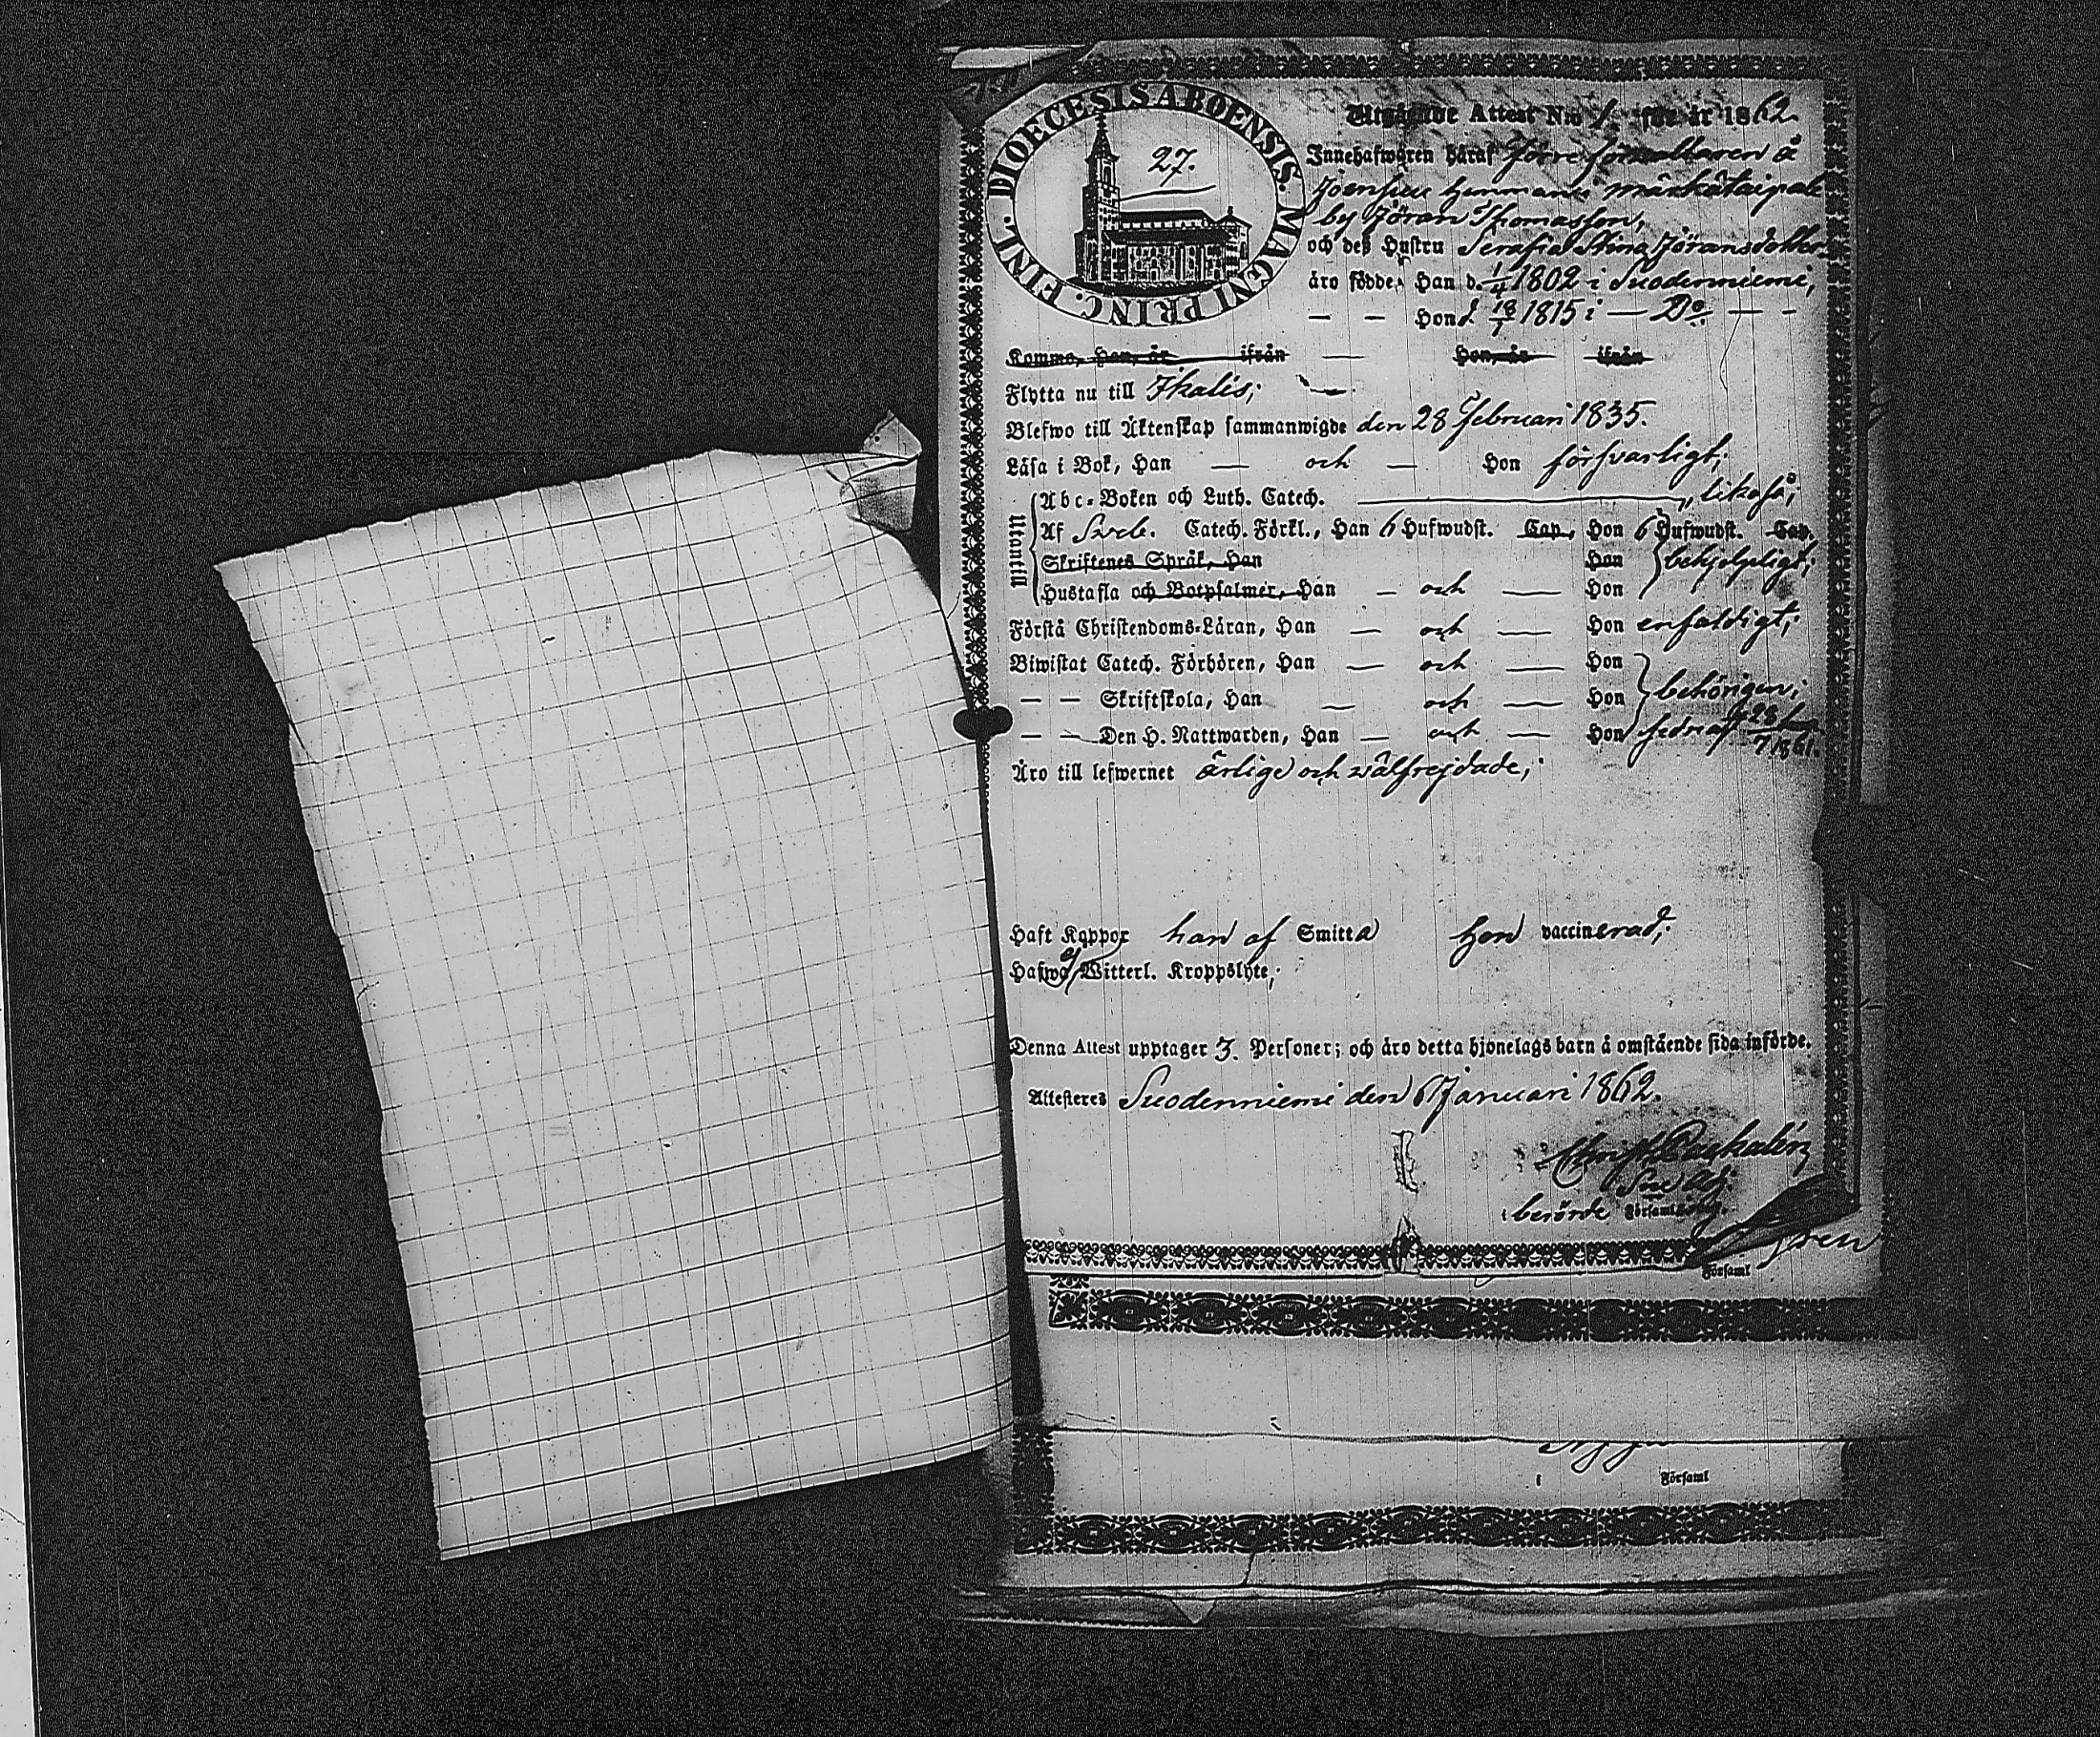 DIOECESIS ABOENSIS. MAGNI PRINC. FINL.
27.
Utgående Attest N:ro 1. för år 1862
Innehafwaren häraf förre förvaltaren å
Joensuu hemmanet märkätaipale
by Jöran Thomasson,
och deß Hustru Serafia Stina Jöransdotter
äro födde, Han d. 1/4 1802 i Suodenniemi,
— — Hon d. 18/1 1815 i — D:o — -
Komma, Han, år ifrån — Hon, år ifrån
Flytta nu till Ikalis;
Blefwo till Äktenskap sammanwigde den 28 Februari 1835.
Läsa i Bok, Han — och — Hon försvarligt;
Utantill
Abc-Boken och Luth. Catech. — likaså;
Af Sveb. Catech. Förkl., Han 6 Hufwudst. Cap., Hon 6 Hufwudst. Cap.
Skriftenes Språk, Han Hon behjelpligt;
Hustafla och Botpsalmer, Han — och — Hon
Förstå Christendoms-Läran, Han — och — Hon enfaldigt;
Biwistat Catech. Förhören, Han — och — Hon
— — Skriftskola, Han — och — Hon behörigen;
— — Den H. Nattwarden, Han — och — Hon 28/7 1861.
Äro till lefwernet ärlige och välfrejdade;
Haft Koppor han af Smitta Hon vaccinerad;
Hafwa ej Witterl. Kroppslyte;
Denna Attest upptager 3. Personer; och äro detta hjonelags barn å omstående sida införde.
Attesteras Suodenniemi den 6 Januari 1862.
Christ.
i berörde Församling.
Församl
i Församl